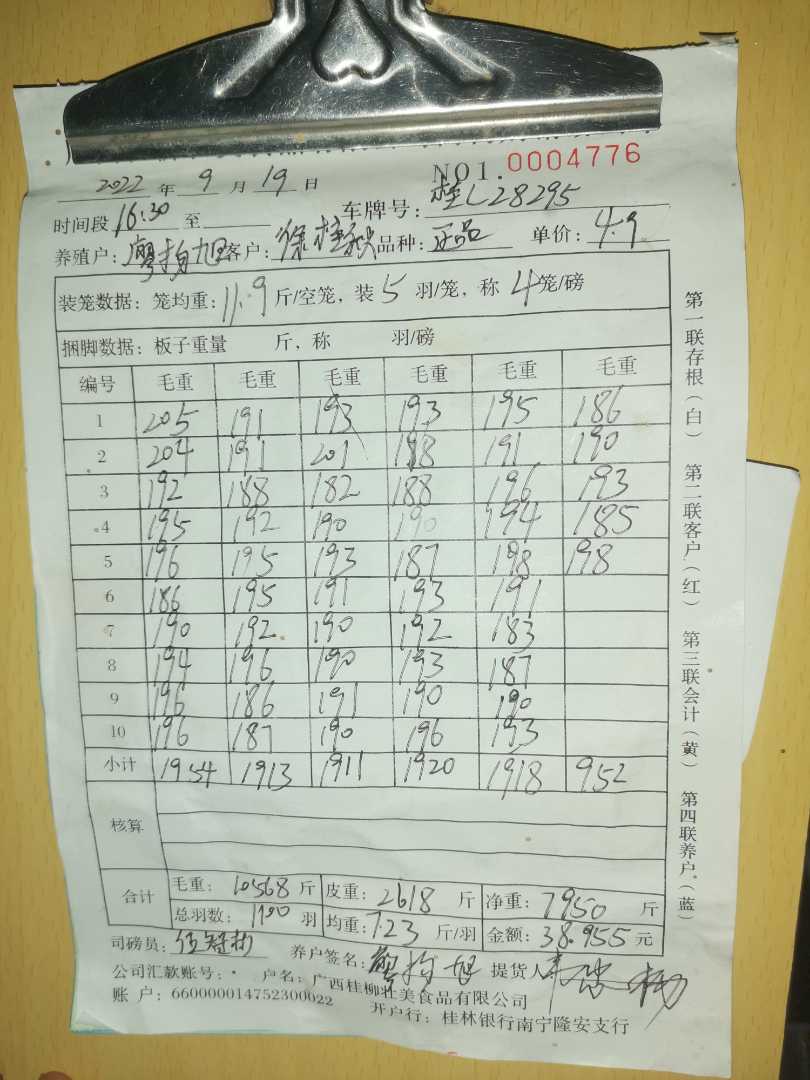 NO1.0004776
2022 年 9 月 19 日
时间段 16:30 至 车牌号: 桂L28295
养殖户: 廖柏旭 客户: 徐桂秋 品种: 正品 单价: 4.9
装笼数据: 笼均重: 11.9 斤/空笼, 装 5 羽/笼, 称 4 笼/磅
捆脚数据: 板子重量 斤, 称 羽/磅
编号 毛重 毛重 毛重 毛重 毛重 毛重
1 205 191 193 193 195 186
2 204 191 201 198 191 190
3 192 188 182 188 196 193
4 195 192 190 190 194 185
5 196 195 193 187 198 198
6 186 195 191 193 191
7 190 192 190 192 183
8 194 196 190 193 187
9 196 186 191 190 190
10 196 187 190 196 193
小计 1954 1913 1911 1920 1918 952
核算
合计 毛重: 10568 斤 皮重: 2618 斤 净重: 7950 斤
总羽数: 1100 羽 均重: 7.23 斤/羽 金额: 38.955 元
司磅员: 养户签名: 廖柏旭 提货人
公司汇款账号: 户名: 广西桂柳壮美食品有限公司
账 户: 660000014752300022 开户行: 桂林银行南宁隆安支行
第一联存根(白) 第二联客户(红) 第三联会计(黄) 第四联养户(蓝)